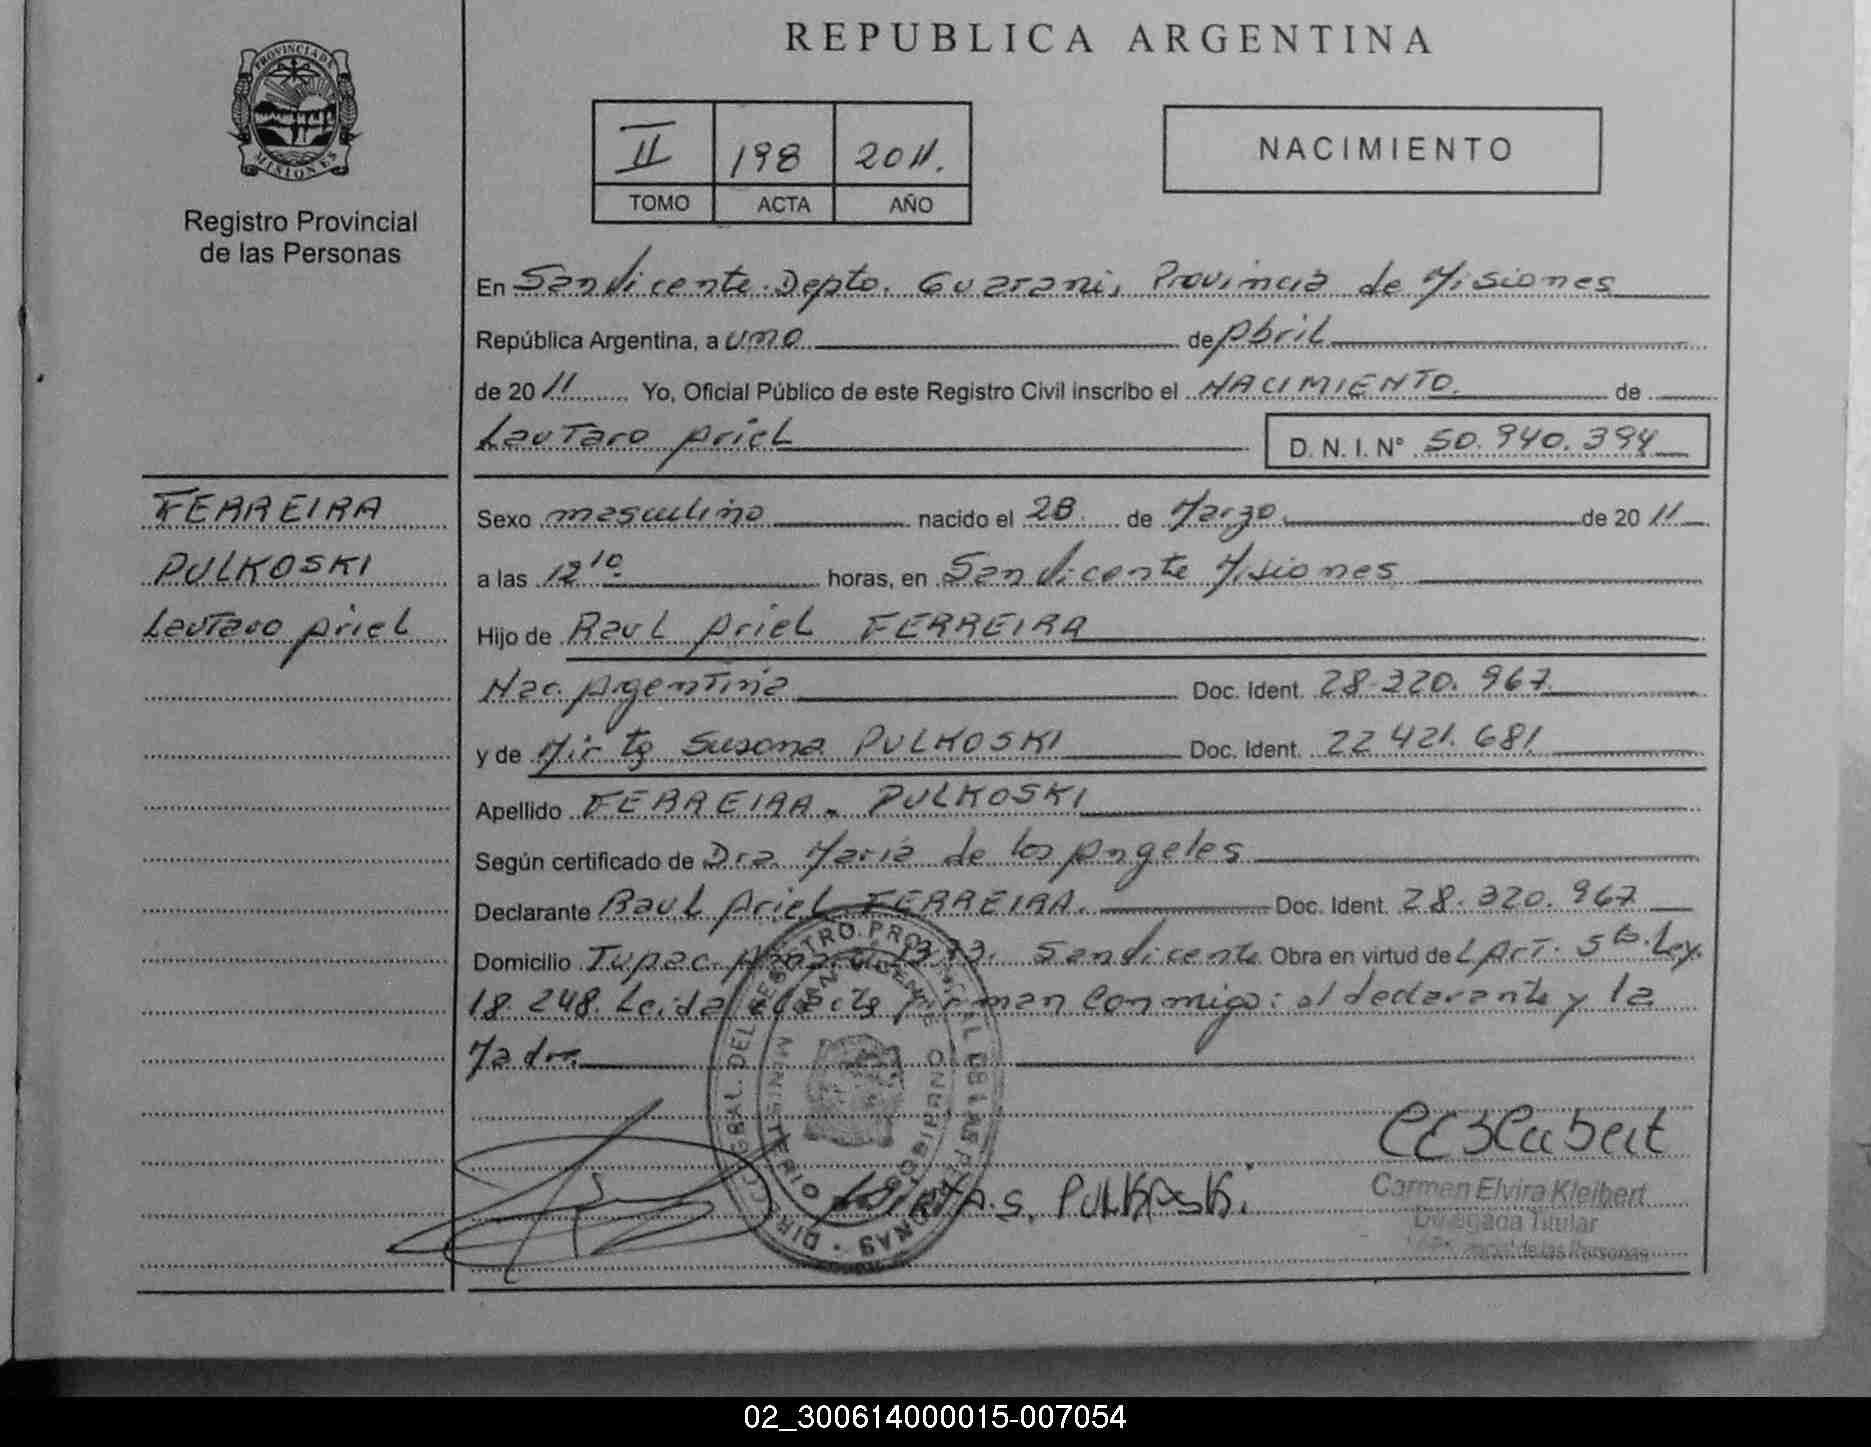 REPUBLICA ARGENTINA
PROVINCIA DE
MISIONES
Registro Provincial
de las Personas
II 198 2011.
TOMO ACTA AÑO
NACIMIENTO
En San Vicente Depto. Guarani, Provincia de Misiones
República Argentina, a uno de Abril
de 2011 Yo, Oficial Público de este Registro Civil inscribo el NACIMIENTO. de
Lautaro Ariel D. N. I. N° 50.940.394
FERREIRA
PULKOSKI
Lautaro Ariel
Sexo masculino nacido el 28 de Marzo de 2011
a las 12 10 horas, en San Vicente Misiones
Hijo de Raul Ariel FERREIRA
Nac. Argentina Doc. Ident. 28.320.967
y de Mirta Susana PULKOSKI Doc. Ident. 22.421.681
Apellido FERREIRA - PULKOSKI
Según certificado de Dra Maria de los Angeles
Declarante Raul Ariel FERREIRA. Doc. Ident. 28.320.967
Domicilio Tupac San Vicente Obra en virtud de L Art. 5to. Ley.
18.248. Leida el acta firman conmigo: el declarante y la
Madre
MINISTERIO DE GOBIERNO
Mirta.S. Pulkoski.
Carmen Elvira Kleibert
Delegada Titular
de las Personas
02_300614000015-007054